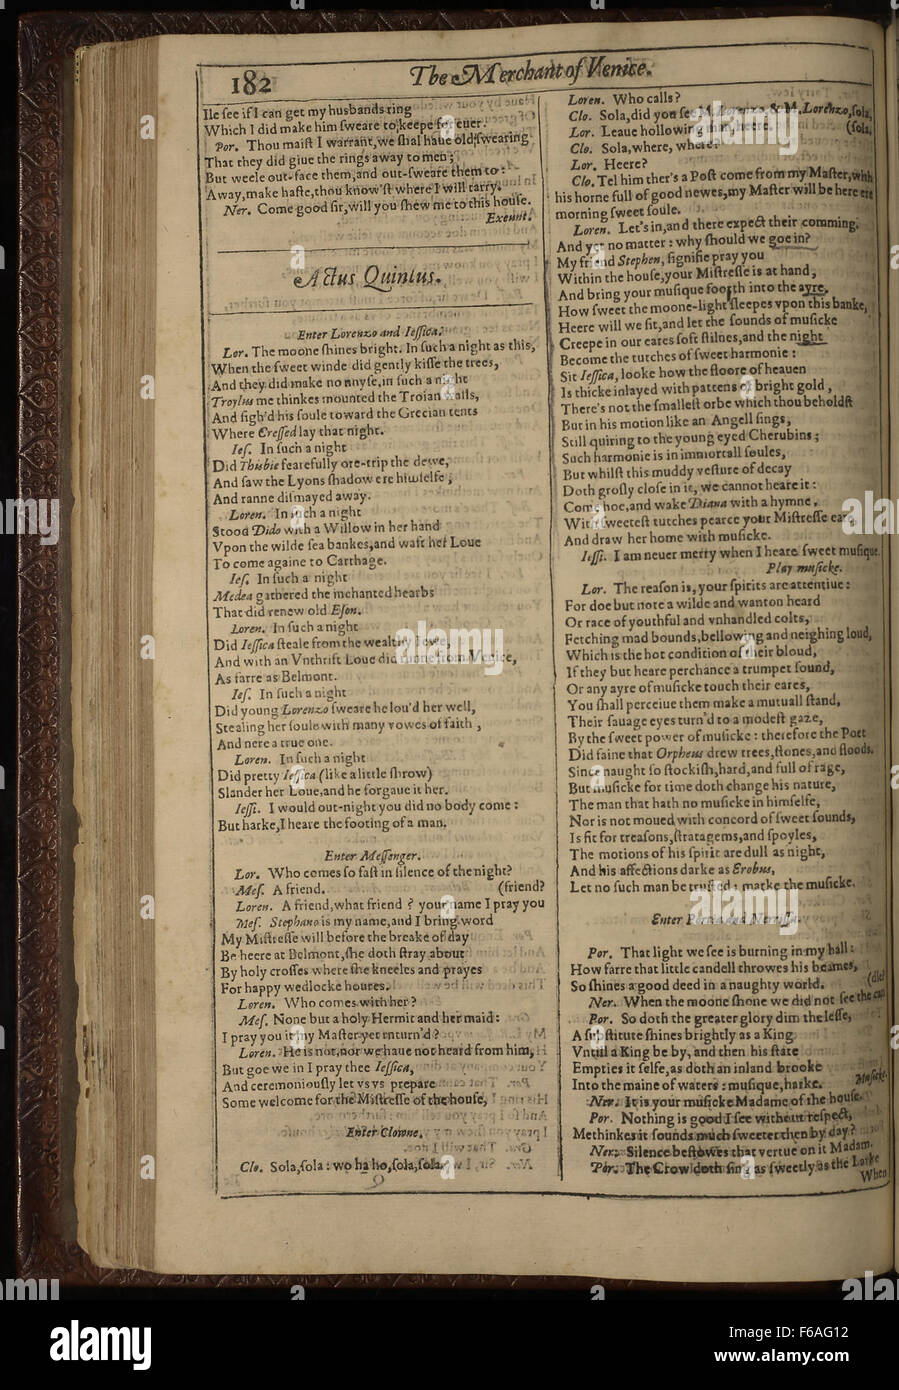 182
The Merchant of Venice.
Ile ſee if I can get my husbands ring
Which I did make him ſweare to keepe for euer.
Por. Thou maiſt I warrant, we ſhal haue old ſwearing
That they did giue the rings away to men;
But weele out-face them, and out-ſweare them to:
Away, make haſte, thou know'ſt where I will tarry.
Ner. Come good ſir, will you ſhew me to this houſe.
Exeunt.
Actus Quintus.
Enter Lorenzo and Ieſſica.
Lor. The moone ſhines bright. In ſuch a night as this,
When the ſweet winde did gently kiſſe the trees,
And they did make no nnyſe, in ſuch a night
Troylus me thinkes mounted the Troian walls,
And ſigh'd his ſoule toward the Grecian tents
Where Creſſed lay that night.
Ieſ. In ſuch a night
Did Thisbie fearefully ore-trip the dewe,
And ſaw the Lyons ſhadow ere himſelfe,
And ranne diſmayed away.
Loren. In ſuch a night
Stood Dido with a Willow in her hand
Vpon the wilde ſea bankes, and waft her Loue
To come againe to Carthage.
Ieſ. In ſuch a night
Medea gathered the inchanted hearbs
That did renew old Eſon.
Loren. In ſuch a night
Did Ieſſica ſteale from the wealthy Iewe,
And with an Vnthrift Loue did runne from Venice,
As farre as Belmont.
Ieſ. In ſuch a night
Did young Lorenzo ſweare he lou'd her well,
Stealing her ſoule with many vowes of faith,
And nere a true one.
Loren. In ſuch a night
Did pretty Ieſſica (like a little ſhrow)
Slander her Loue, and he forgaue it her.
Ieſſi. I would out-night you did no body come:
But harke, I heare the footing of a man.
Enter Meſſenger.
Lor. Who comes ſo faſt in ſilence of the night?
Meſ. A friend. (friend?
Loren. A friend, what friend? your name I pray you
Meſ. Stephano is my name, and I bring word
My Miſtreſſe will before the breake of day
Be heere at Belmont, ſhe doth ſtray about
By holy croſſes where ſhe kneeles and prayes
For happy wedlocke houres.
Loren. Who comes with her?
Meſ. None but a holy Hermit and her maid:
I pray you is my Maſter yet rnturn'd?
Loren. He is not, nor we haue not heard from him,
But goe we in I pray thee Ieſſica,
And ceremoniouſly let vs vs prepare
Some welcome for the Miſtreſſe of the houſe,
Enter Clowne.
Clo. Sola, ſola: wo ha ho, ſola, ſola.
Loren. Who calls?
Clo. Sola, did you ſee M. Lorenzo, & M. Lorenzo, ſola,
Lor. Leaue hollowing man, heere. (ſola,
Clo. Sola, where, where?
Lor. Heere?
Clo. Tel him ther's a Poſt come from my Maſter, with
his horne full of good newes, my Maſter will be here ere
morning ſweet ſoule.
Loren. Let's in, and there expect their comming.
And yet no matter: why ſhould we goe in?
My friend Stephen, ſignifie pray you
Within the houſe, your Miſtreſſe is at hand,
And bring your muſique foorth into the ayre.
How ſweet the moone-light ſleepes vpon this banke,
Heere will we ſit, and let the ſounds of muſicke
Creepe in our eares ſoft ſtilnes, and the night
Become the tutches of ſweet harmonie:
Sit Ieſſica, looke how the floore of heauen
Is thicke inlayed with pattens of bright gold,
There's not the ſmalleſt orbe which thou beholdſt
But in his motion like an Angell ſings,
Still quiring to the young eyed Cherubins;
Such harmonie is in immortall ſoules,
But whilſt this muddy veſture of decay
Doth groſly cloſe in it, we cannot heare it:
Come hoe, and wake Diana with a hymne,
With ſweeteſt tutches pearce your Miſtreſſe eare,
And draw her home with muſicke.
Ieſſi. I am neuer merry when I heare ſweet muſique.
Play muſicke.
Lor. The reaſon is, your ſpirits are attentiue:
For doe but note a wilde and wanton heard
Or race of youthful and vnhandled colts,
Fetching mad bounds, bellowing and neighing loud,
Which is the hot condition of their bloud,
If they but heare perchance a trumpet ſound,
Or any ayre of muſicke touch their eares,
You ſhall perceiue them make a mutuall ſtand,
Their ſauage eyes turn'd to a modeſt gaze,
By the ſweet power of muſicke: therefore the Poet
Did faine that Orpheus drew trees, ſtones, and floods.
Since naught ſo ſtockiſh, hard, and full of rage,
But muſicke for time doth change his nature,
The man that hath no muſicke in himſelfe,
Nor is not moued with concord of ſweet ſounds,
Is fit for treaſons, ſtratagems, and ſpoyles,
The motions of his ſpirit are dull as night,
And his affections darke as Erobus,
Let no ſuch man be truſted: marke the muſicke.
Enter Portia and Nerriſſa.
Por. That light we ſee is burning in my hall:
How farre that little candell throwes his beames,
So ſhines a good deed in a naughty world. (dle
Ner. When the moone ſhone we did not ſee the can
Por. So doth the greater glory dim the leſſe,
A ſubſtitute ſhines brightly as a King
Vntill a King be by, and then his ſtate
Empties it ſelfe, as doth an inland brooke
Into the maine of waters: muſique, harke. Muſicke.
Ner. It is your muſicke Madame of the houſe.
Por. Nothing is good I ſee without reſpect,
Methinkes it ſounds much ſweeter then by day?
Ner. Silence beſtowes that vertue on it Madam.
Por. The Crow doth ſing as ſweetly as the Larke
When
alamy stock photo
F6AG12
www.alamy.com